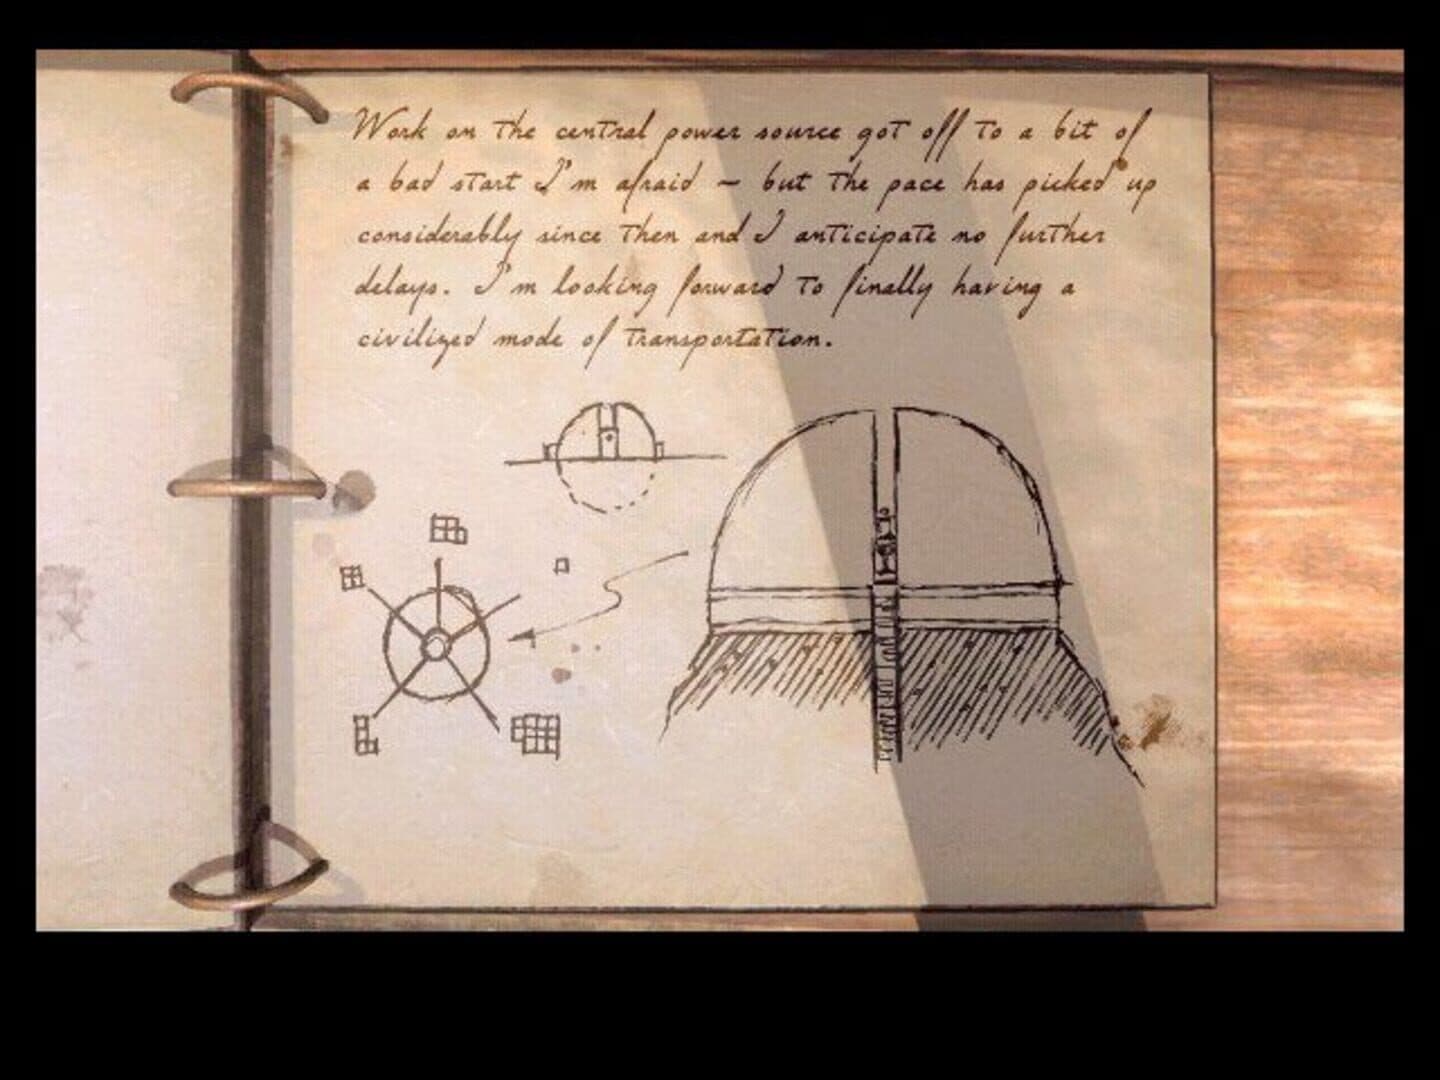 Work on the central power source got off to a bit of
a bad start I'm afraid – but the pace has picked up
considerably since then and I anticipate no further
delays. I'm looking forward to finally having a
civilized mode of transportation.